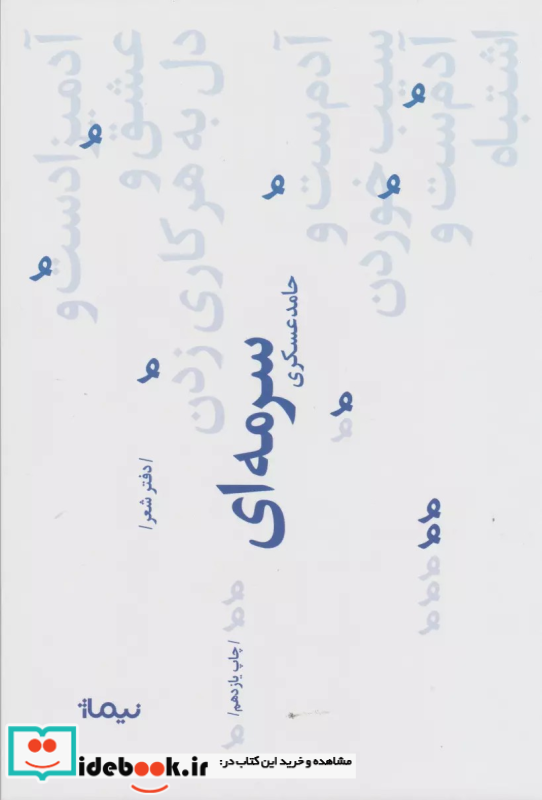 آدمیزادست و
عشق و
دل به هر کاری زدن
آدم‌ست و
سیب خوردن
آدم‌ست و
اشتباه
حامد عسکری
سرمه‌ای
/ دفتر شعر /
/ چاپ یازدهم /
نیماژ
مشاهده و خرید این کتاب در:
idebook.ir